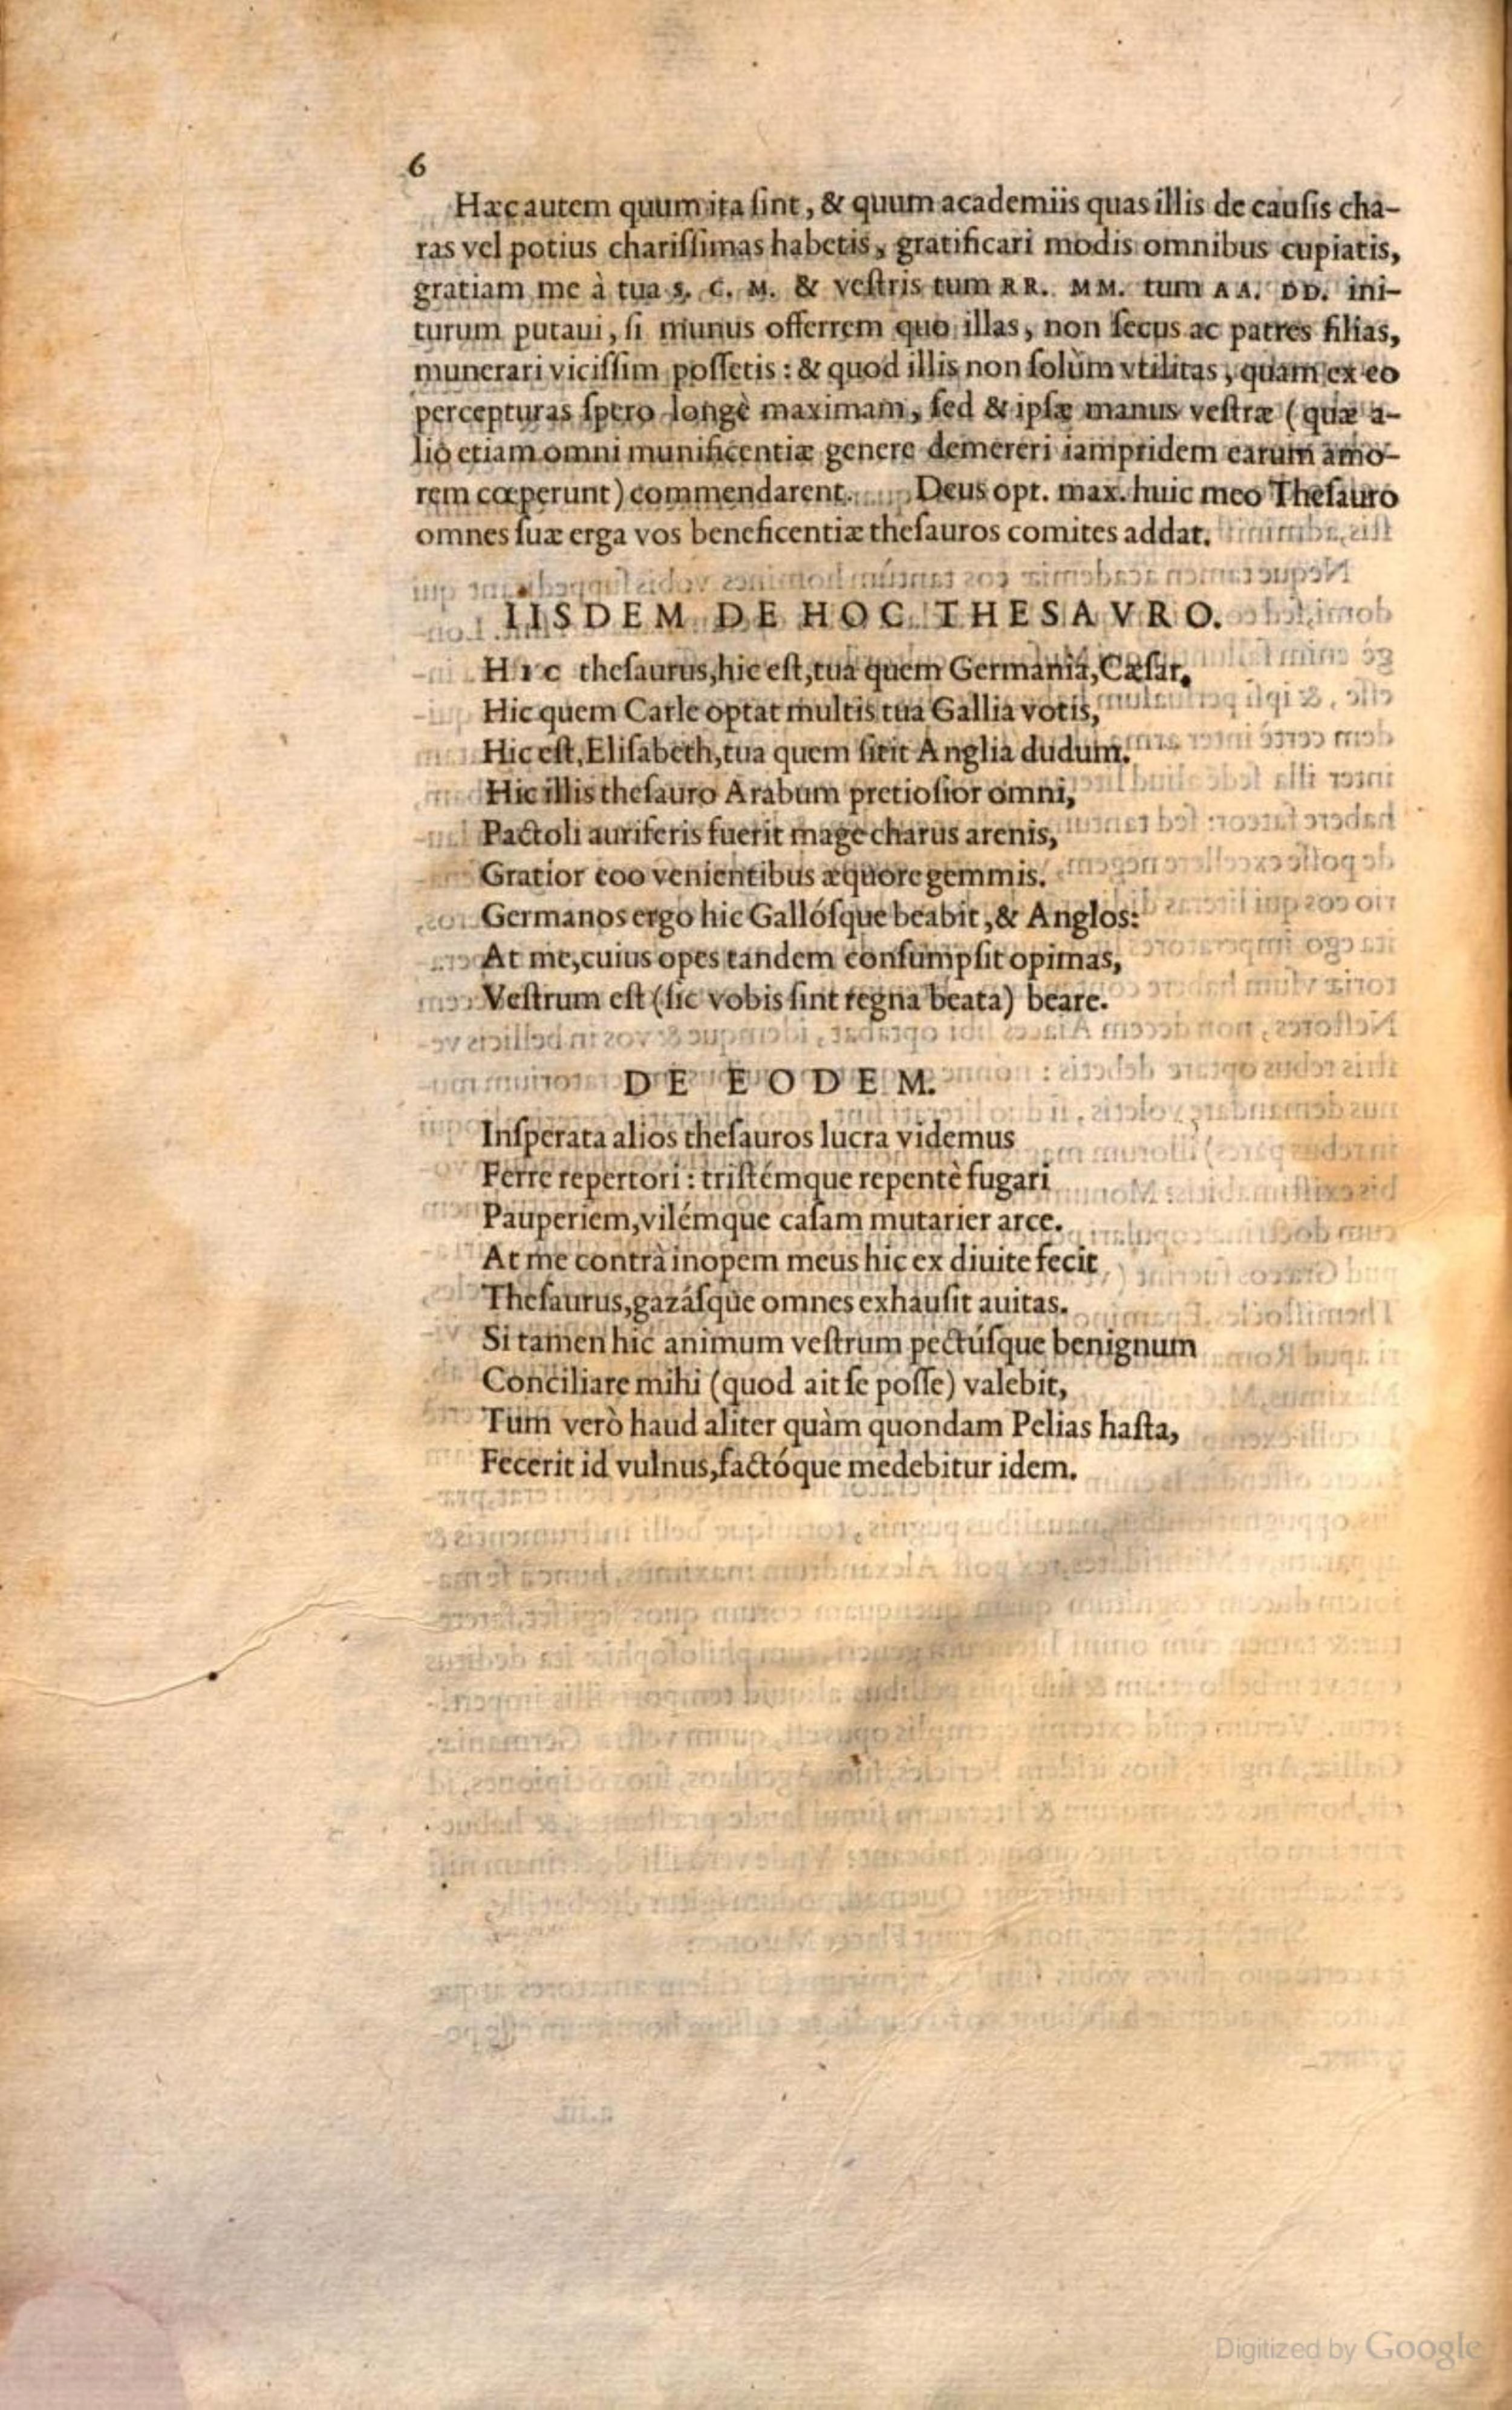 6
Hæc autem quum ita ſint, & quum academiis quas illis de cauſis cha-
ras vel potius chariſſimas habetis, gratificari modis omnibus cupiatis,
gratiam me à tua S. C. M. & veſtris tum RR. MM. tum AA. DD. ini-
turum putaui, ſi munus offerrem quo illas, non ſecus ac patres filias,
munerari viciſſim poſſetis : & quod illis non ſolùm vtilitas, quam ex eo
percepturas ſpero longè maximam, ſed & ipſæ manus veſtræ (quæ a-
lio etiam omni munificentiæ genere demereri iampridem earum amo-
rem cœperunt) commendarent. Deus opt. max. huic meo Theſauro
omnes ſuæ erga vos beneficentiæ theſauros comites addat.
IISDEM DE HOC THESAVRO.
HIC theſaurus, hic eſt, tua quem Germania, Cæſar,
Hic quem Carle optat multis tua Gallia votis,
Hic eſt, Eliſabeth, tua quem ſitit Anglia dudum.
Hic illis theſauro Arabum pretioſior omni,
Pactoli auriferis fuerit mage charus arenis,
Gratior eoo venientibus æquore gemmis.
Germanos ergo hic Gallóſque beabit, & Anglos:
At me, cuius opes tandem conſumpſit opimas,
Veſtrum eſt (ſic vobis ſint regna beata) beare.
DE EODEM.
Inſperata alios theſauros lucra videmus
Ferre repertori : triſtémque repentè fugari
Pauperiem, vilémque caſam mutarier arce.
At me contrà inopem meus hic ex diuite fecit
Theſaurus, gazáſque omnes exhauſit auitas.
Si tamen hic animum veſtrum pectúſque benignum
Conciliare mihi (quod ait ſe poſſe) valebit,
Tum verò haud aliter quàm quondam Pelias haſta,
Fecerit id vulnus, factóque medebitur idem.
Digitized by Google